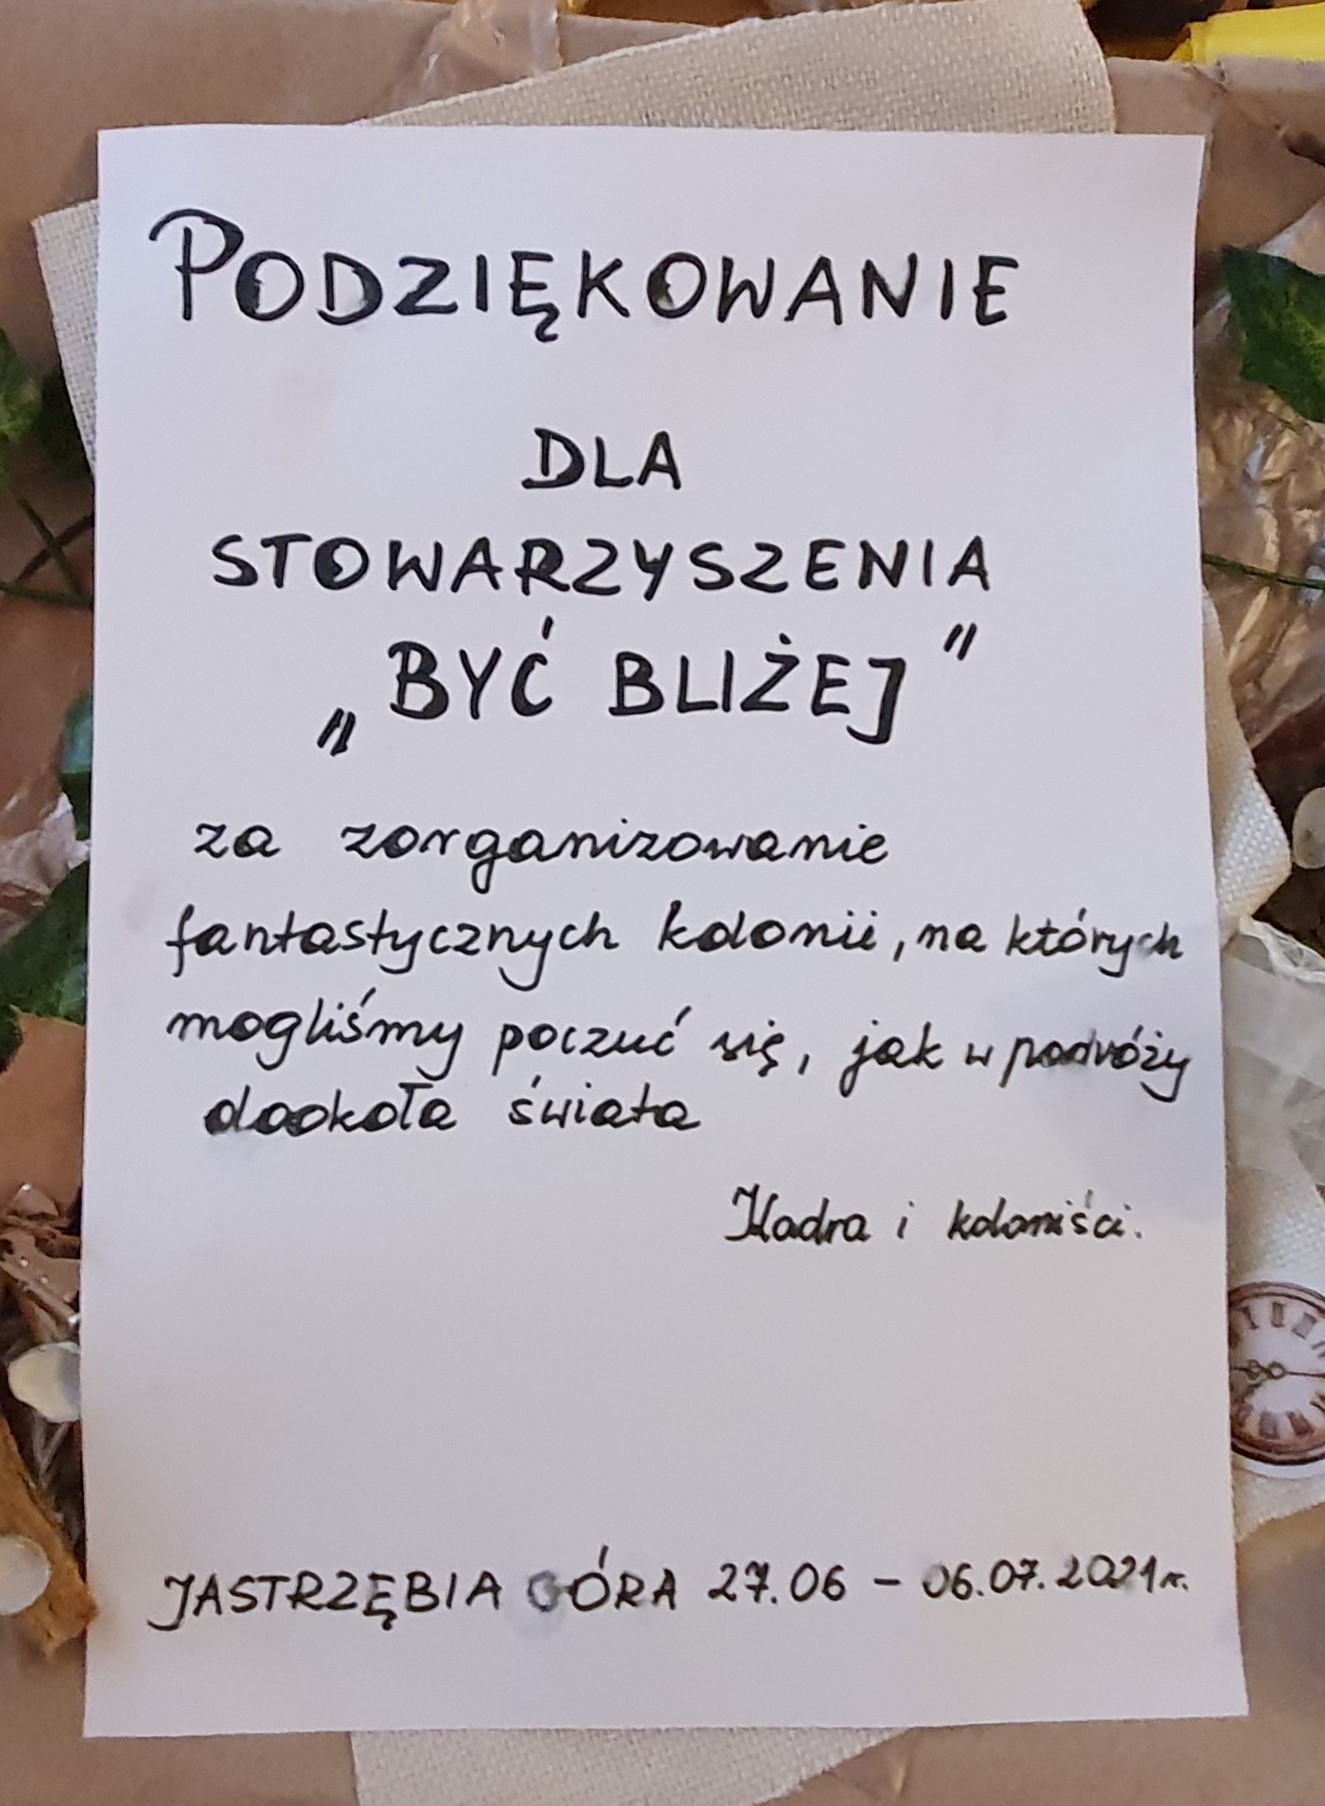 PODZIĘKOWANIE
DLA
STOWARZYSZENIA
„BYĆ BLIŻEJ"
za zorganizowanie
fantastycznych kolonii, na których
mogliśmy poczuć się, jak w podróży
dookoła świata
Kadra i koloniści.
JASTRZĘBIA GÓRA 27.06 – 06.07.2021r.